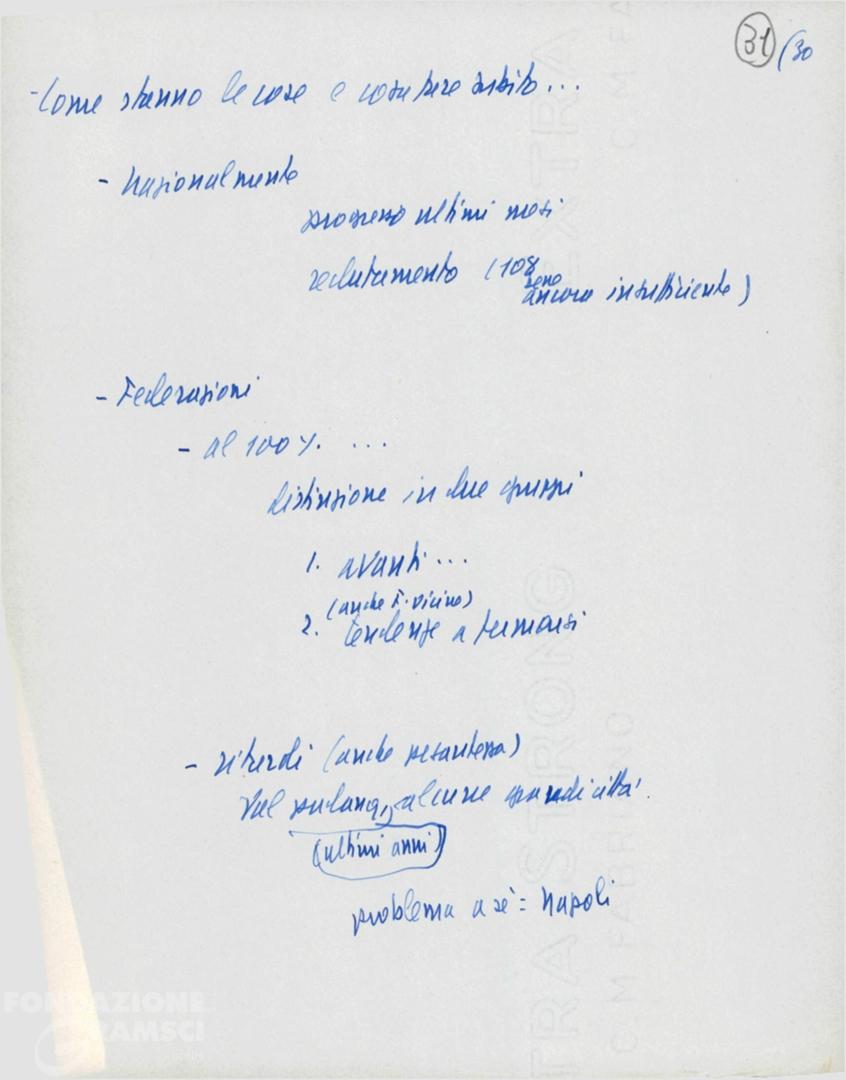 31 /30
- Come stanno le cose e cosa fare subito...
- Nazionalmente
progresso ultimi mesi
reclutamento (108
ancora insufficiente)
- Federazioni
- al 100% ...
distinzione in due gruppi
1. avanti...
(anche F. vicino)
2. tendenze a fermarsi
- ritardi (anche pesantezza)
Val padana, alcune grandi città.
(ultimi anni)
problema a sé = Napoli
EXTRA STRONG
C.M FABRIANO
FONDAZIONE
GRAMSCI